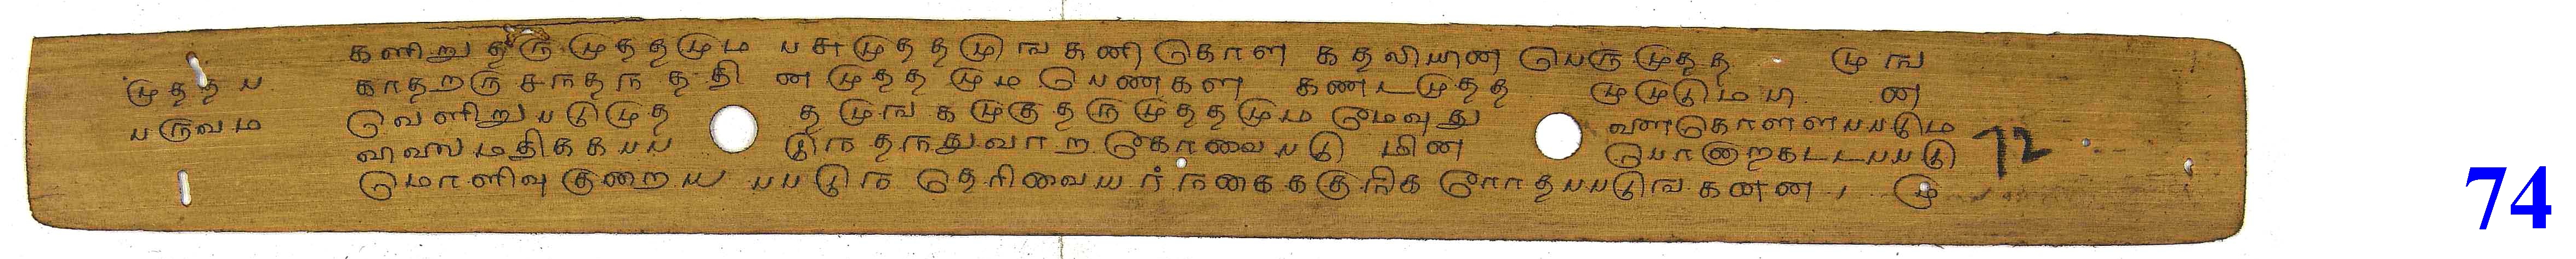 முததப
பருவம
களிறு தருமுததமும பசுமுததமுங கனி கொள கதலியின பெருமுதத முங
காதறரு சநதந ததி ன முதத மும பெணகள கணடமுதத முமுடும பி ன
வெளிறுபடுமுத த முங கமுகுதருமுததமும மேவுது வணகொளளபபடும
விலைமதிககபப டுந தநதுவாற கோவைபடு மின யொறைகடடபபடு
மொளிவு குறைய பபடுந தெரிவையர் நகைககுஙக ளோதபபடுங கணண, மு
72
74